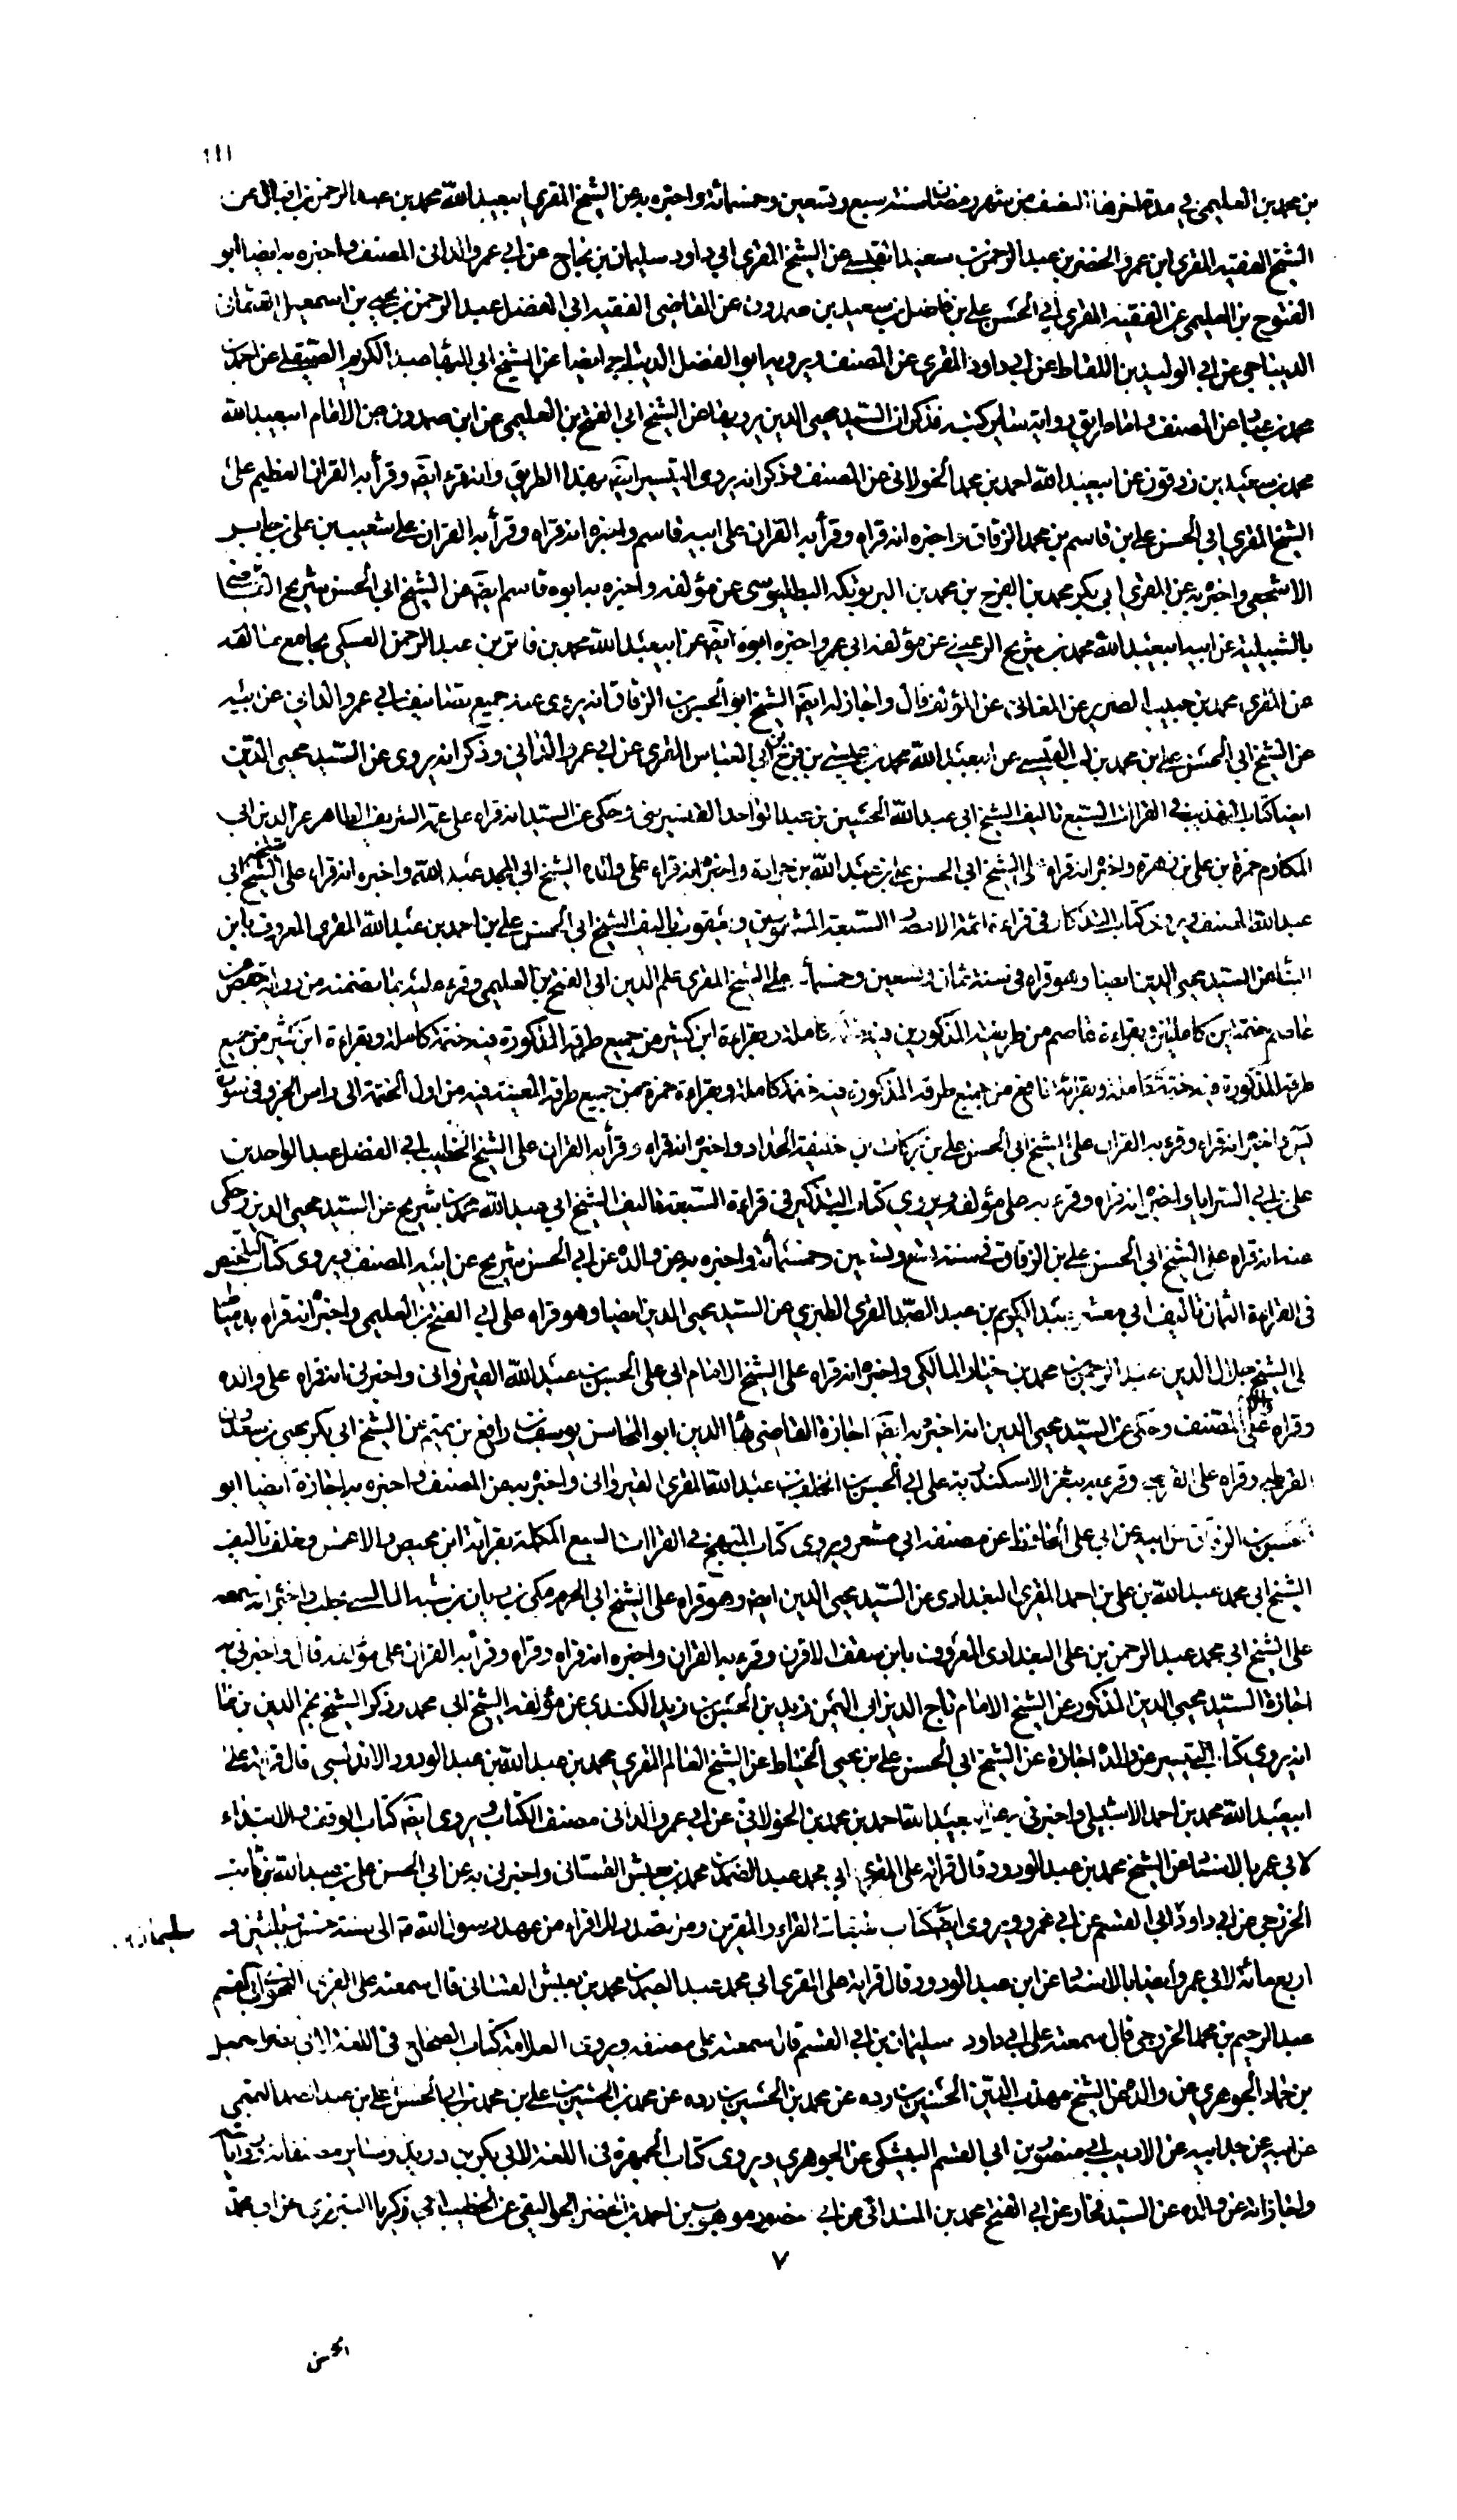 ١١١
بن محمد بن العليمي في مدة اخرها النصف من شهر رمضان سنة سبع وتسعين وخمسمائة واخبره به عن الشيخ المقري ابيعبد الله محمد بن عبد الرحمن بن اقبال عن
الشيخ الفقيه المقري ابن عمرو الخضر بن عبد الرحمن بن سعيد القيسي عن الشيخ المقري ابي داود سليمان بن نجاح عن ابي عمرو الداني المصنف واخبره به ايضا ابو
الفتوح بن العليمي عن الفقيه المقري ابي الحسن علي بن فاضل بن سعيد بن حمدون عن القاضي الفقيه ابي الفضل عبد الرحمن بن يحيى بن اسمعيل العثماني
الديباجي عن ابي الوليد بن اللقاط عن ابي داود المقري عن المصنف ويرويه ابو الفضل الديباجي ايضا عن الشيخ ابي البقا عبد الكريم الصيقلي عن احمد بن
محمد بن المصنف واما طريق رواية ساير كتبه فذكر ان السيد محيى الدين يرويها عن الشيخ ابي الفتح بن العليمي عن ابن حمدون عن الامام ابيعبد الله
محمد بن سعيد بن زرقون عن ابيعبد الله احمد بن محمد الخولاني عن المصنف وذكر انه يروى التيسير ايضَ بهذا الطريق وانه قرء ايضَ وقرأ به القران العظيم على
الشيخ المقري ابي الحسن علي بن قاسم بن محمد الزقاق واخبره انه قراه وقرأ به القران على ابيه قاسم واخبره انه قراه وقرأ به القران على شعيب بن علي بن جابر
الاشجعي واخبره به عن المقري ابي بكر محمد بن المفرج بن محمد بن البربوبكه البطليوسي عن مؤلفه واخبره به ابوه قاسم ايضَ عن الشيخ ابي الحسن شريح القاضي
باشبيلية عن ابيه ابيعبد الله محمد بن شريح الرعيني عن مؤلفه ابي عمرو واخبره ابوه ايضَ عن ابيعبد الله محمد بن فاتن بن عبد الرحمن العسكي بجامع مالقه
عن المقري محمد بن حبيب الضرير عن المغامي عن المؤلف قال واجاز له ايضَ الشيخ ابو الحسن بن الزقاق انه يروى عنه جميع تصانيف ابي عمرو الداني عن ابيه
عن الشيخ ابي الحسن علي بن محمد بن لب القيسي عن ابيعبد الله محمد بن عيسى بن فرج بن ابي العباس المقري عن ابي عمرو الداني وذكر انه يروى عن السيد محيى الدين
ايضا كتاب التهذيب في القراات السبع تاليف الشيخ ابي عبد الله الحسين بن عبد الواحد القنسريني وحكى عن السيد انه قراه على عمه الشريف الطاهر عز الدين ابي
المكارم حمزة بن علي بن زهرة واخبره انه قراه على الشيخ ابي الحسن علي بن عبد الله بن جرادة واخبره انه قراه على والده الشيخ ابي المجد عبد الله واخبره انه قراه على الشيخ ابي
عبد الله المصنف ويروى كتاب التذكار في قراءة ائمة الامصار السبعة المشهورين ويعقوب تاليف الشيخ ابي الحسن علي بن احمد بن عبد الله المقري المعروف بابن
السيد محيى الدين ايضا وهو قراه في سنة ثمان وتسعين وخمسمأ على الشيخ المقري علم الدين ابي الفتح بن العليمي وقرء عليه بما تضمنه من رواية حفص عن
عاصم ختمتين كاملتين وبقراءة عاصم من طريقيه المذكورين فيه ختمة كاملة وبقراءة ابن كثير من جميع طرقه المذكورة فيه ختمة كاملة وبقراءة ابن كثير من جميع
طرقه المذكورة فيه ختمة كاملة وبقراءة نافع من جميع طرقه المذكورة فيه ختمة كاملة وبقراءة حمزة من جميع طرقه المعينة فيه من اول الختمة الى راس الحزب في سورة
يس واخبره انه قراه وقرء به القران على الشيخ ابي الحسن علي بن بركات بن خليفة الحداد واخبره انه قراه وقرأ به القران على الشيخ الخطيب ابي الفضل عبد الواحد بن
علي بن ابي السرايا واخبره انه قراه وقرء به على مؤلفه ويروي كتاب التذكير في قراءة السبعة تاليف الشيخ ابي عبد الله محمد بن شريح عن السيد محيى الدين وحكى
عنه انه قراه على الشيخ ابي الحسن علي بن الزقاق في سنة تسع وتسعين وخمسمائة واخبره به عن والده عن ابي الحسن شريح عن ابيه المصنف ويروى كتاب التلخيص
في القراءة الثمان تاليف ابي معشر عبد الكريم بن عبد الصمد المقري الطبري عن السيد محيى الدين ايضا وهو قراه على ابي الفتح بن العليمي واخبره انه قراه بدمياط
على الشيخ جلال الدين عبد الرحمن بن محمد بن خيار المالكي واخبره انه قراه على الشيخ الامام ابي علي الحسن بن عبد الله القيرواني واخبرني انه قراه على والده
وقراه والده على المصنف وحكى عن السيد محيى الدين انه اخبره به ايضَ اجازة القاضي بهأ الدين ابو المحاسن يوسف بن رافع بن تميم عن الشيخ ابي بكر يحيى بن سعدون
القرطبي وقراه على القرطبي وقرء به بثغر الاسكندرية على ابي الحسن بن الخلف بن عبد الله المقري القيرواني واخبره به عن المصنف واخبره به اجازة ايضا ابو
الحسن بن الزقاق عن ابيه عن ابي علي الحافظ عن مصنفه ابي معشر ويروى كتاب المنهج في القراات السبع المكملة بقرائة ابن محيصن والاعمش وخلف تاليف
الشيخ ابي محمد عبد الله بن علي بن احمد المقري البغدادي عن السيد محيى الدين ايضَ وهو قراه على الشيخ ابي الحرم مكي بن ريان بن شبه الماكسي بحلب واخبره انه سمعه
على الشيخ ابي محمد عبد الرحمن بن علي البغدادي المعروف بابن سقف الاقرن وقرء به القران واخبره انه قراه وقراه وقرأ به القران على مؤلفه قال واخبرني به
اجازة السيد محيى الدين المذكور عن الشيخ الامام تاج الدين ابي اليمن زيد بن الحسين بن زيد الكندي عن مؤلفه الشيخ ابي محمد وذكر الشيخ نجم الدين بن نما
انه يروى كتاب التيسير عن والده اجازة عن الشيخ ابي الحسن علي بن يحيى الخياط عن الشيخ العالم المقري محمد بن عبد الله بن عبد الودود الاندلسي قال قراته على
ابيعبد الله محمد بن احمد الاشبيلي واخبرني به عن ابيعبد الله احمد بن محمد بن الخولاني عن ابي عمرو الداني مصنف الكتاب ويروى ايضَ كتاب الوقف والابتداء
لابي عمرو بالاسناد عن الشيخ محمد بن عبد الودود قال قراته على المقري ابي محمد عبد الصمد بن محمد بن يعيش الغساني واخبرني به عن ابي الحسن علي بن عبد الله بن ثابت
الخزرجي عن ابي داود ابي القسم عن ابي عمرو ويروى ايضَ كتاب طبقات القراء والمقرين ومن تصدر للاقراء من عهد رسول الله ص الى سنة خمس وثلثين و
سليمان بن
اربعمائة لابي عمرو ايضا بالاسناد عن ابن عبد الودود قال قراته على المقري ابي محمد عبد الصمد بن محمد بن يعيش الغساني قال سمعته على المقري النحوي ابي القسم
عبد الرحيم بن محمد الخزرجي قال سمعته على ابي داود سليمان بن ابي القسم قال سمعته على مصنفه ويروى العلامة كتاب الصحاح في اللغة لابي نصر اسمعيل
بن حماد الجوهري عن والده عن الشيخ مهذب الدين الحسين بن رده عن محمد بن الحسين بن رده عن محمد بن الحسين بن علي بن محمد بن ابي الحسن علي بن عبد الصمد التميمي
عن ابيه عن جد ابيه عن الاديب ابي منصور بن ابي القسم البيشكي عن الجوهري ويروى كتاب الجمهرة في اللغة لابي بكر بن دريد وساير مصنفاته ورواياته
واجازاته عن والده عن السيد فخار عن ابي الفتح محمد بن المنداني عن ابي منصور موهوب بن احمد بن الخضر الجواليقي عن الخطيب ابي زكريا التبريزي عن ابي محمد
٧
الحسن